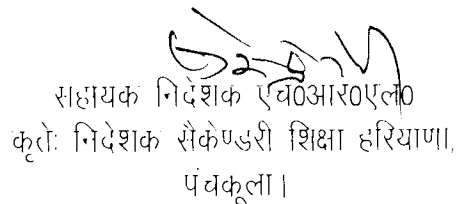 सहायक निदेशक एच0आर0एल0
कृतेः निदेशक सैकेण्डरी शिक्षा हरियाणा,
पंचकूला।